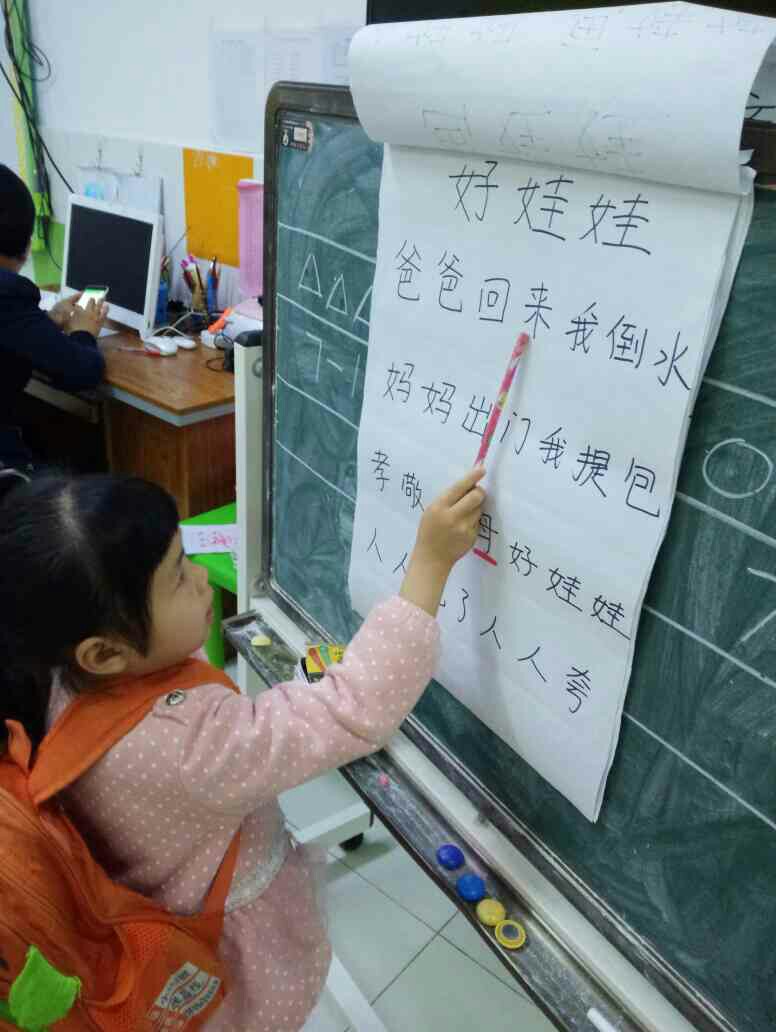 好娃娃
爸爸回来我倒水
妈妈出门我提包
孝敬 母好娃娃
人人 了人人夸
7-1